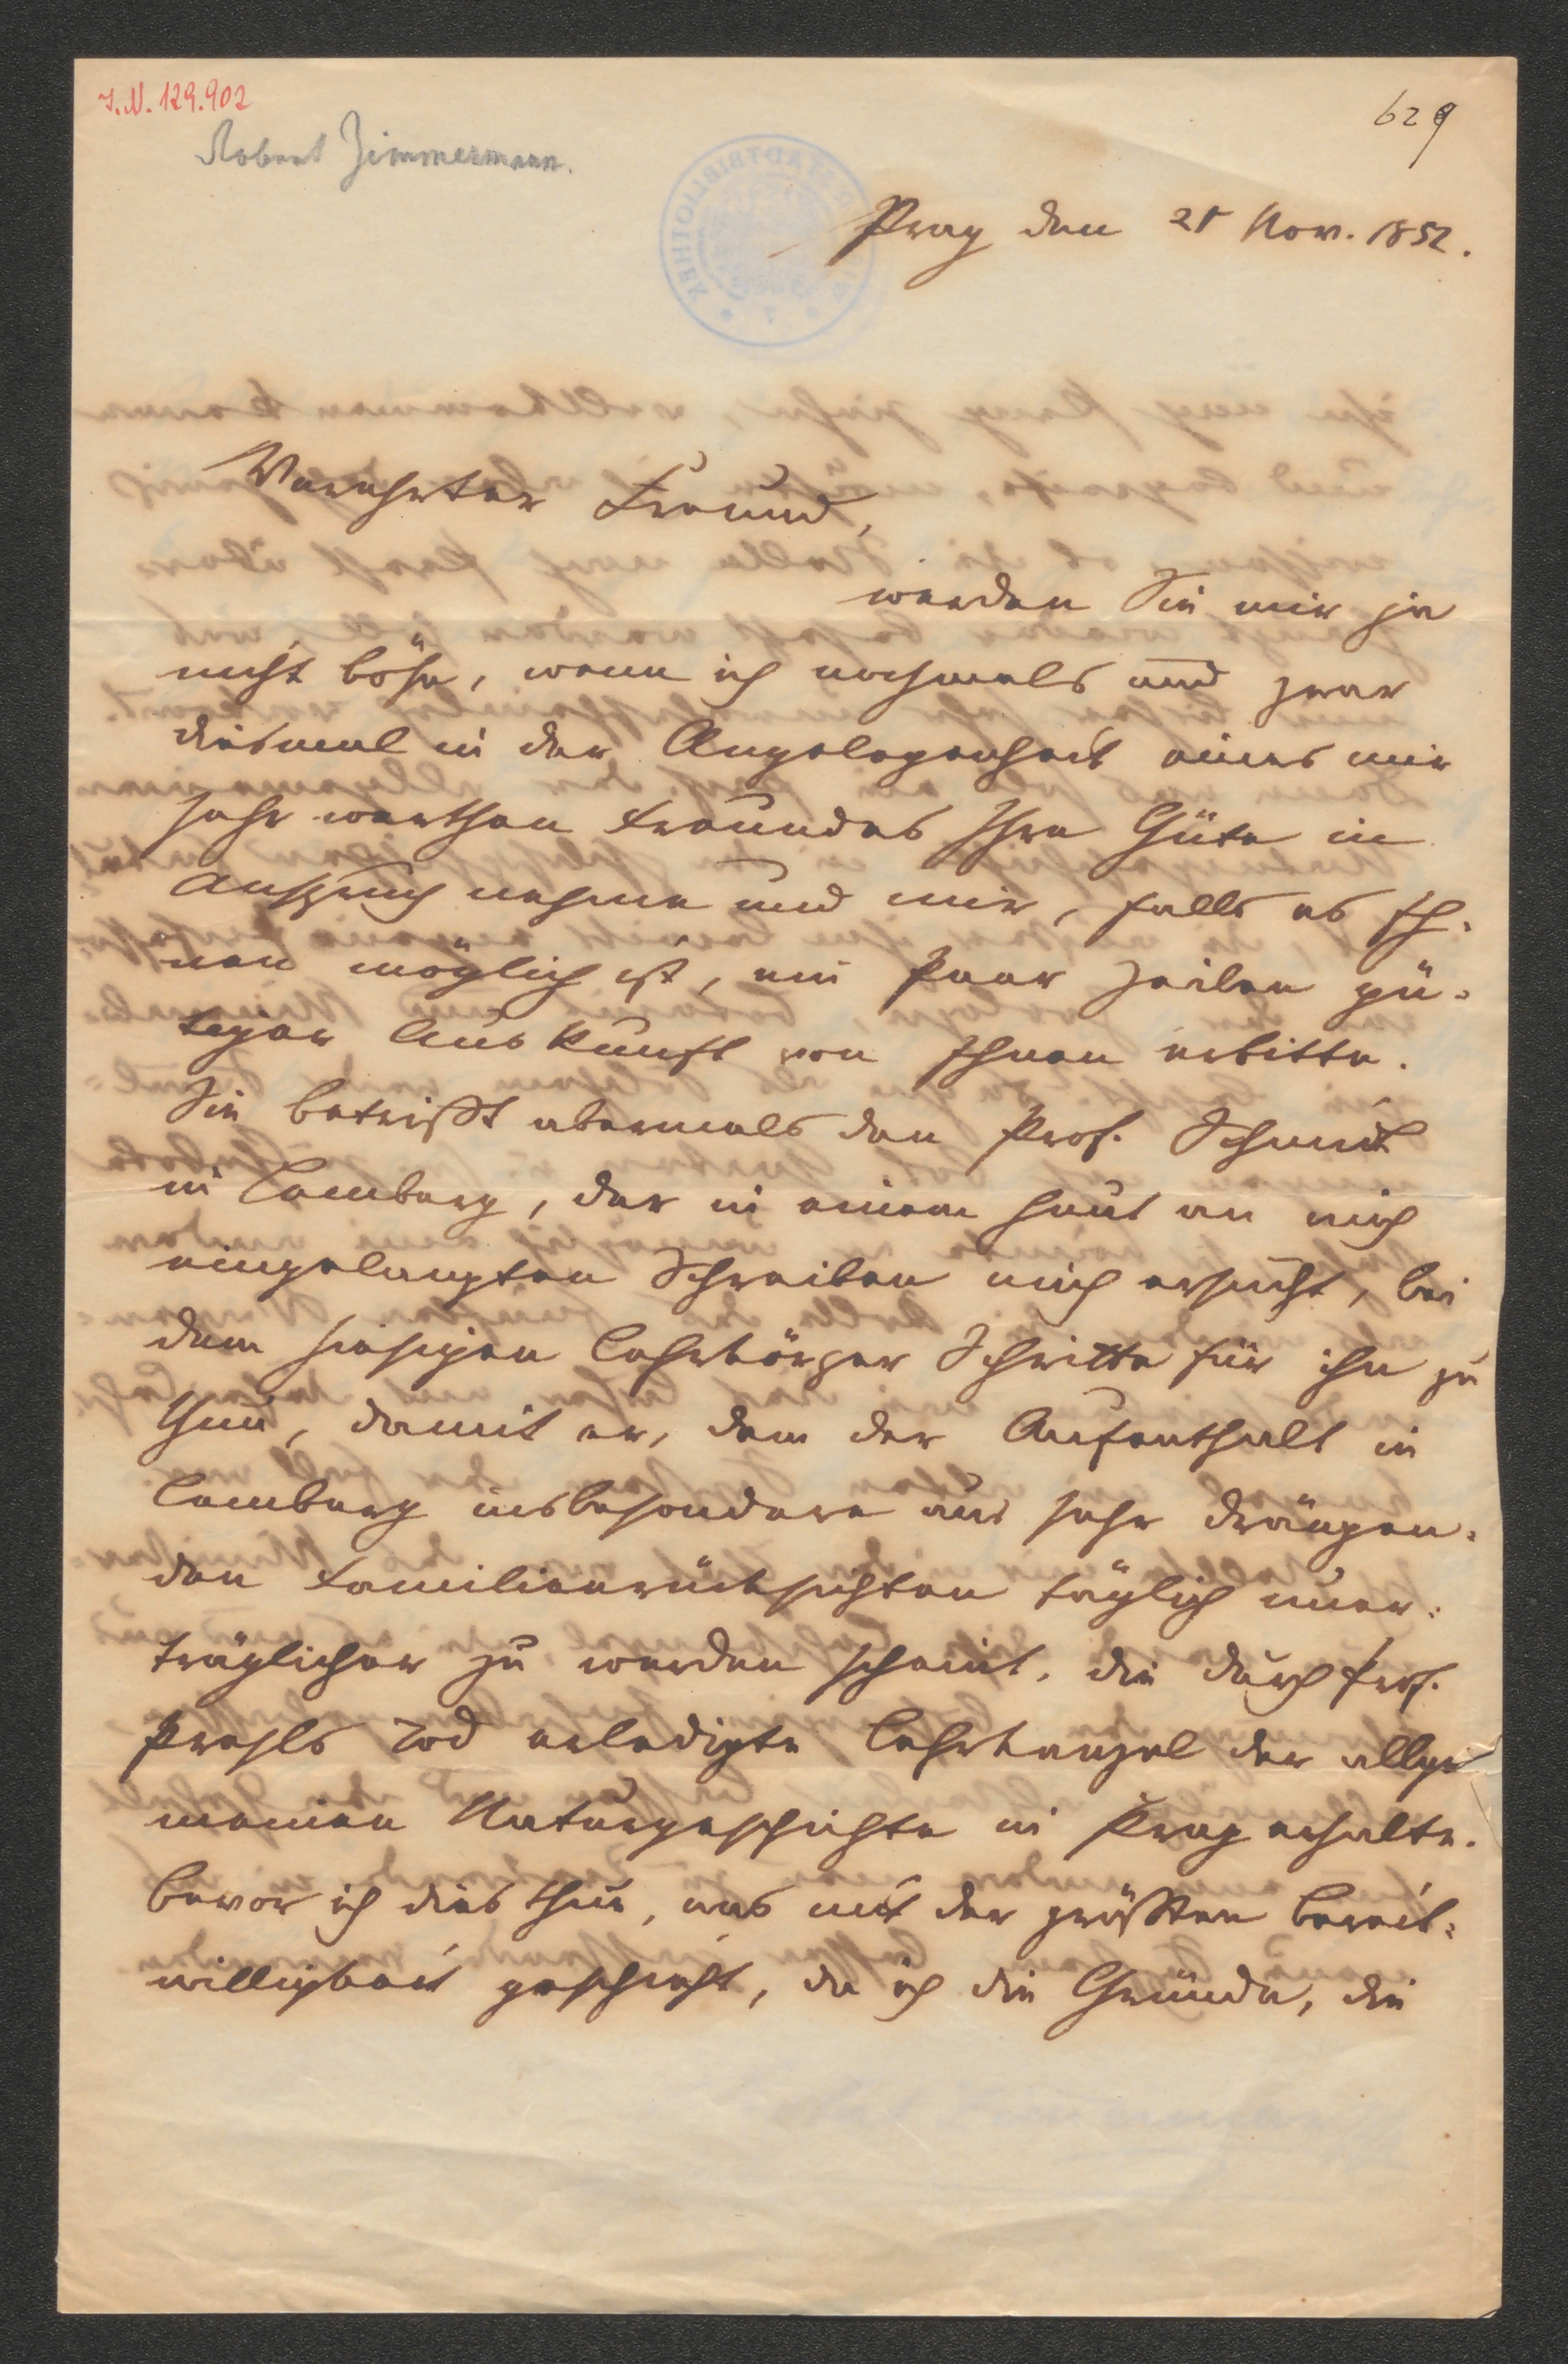 I.N. 129.902
Robert Zimmermann.
629
Prag den 21 Nov. 1852.
Verehrter Freund,
werden Sie mir ja
nicht böse, wenn ich nochmals und zwar
diesmal in der Angelegenheit eines mir
sehr werthen Freundes Ihre Güte in
Anspruch nehme und mir, falls es Ih-
nen möglich ist, ein Paar Zeilen gü-
tiger Auskunft von Ihnen erbitte.
Sie betrifft abermals den Prof. Schmidt
in Lemberg, der in einem heut an mich
eingelangten Schreiben mich ersucht, bei
dem hiesigen Lehrkörper Schritte für ihn zu
thun, damit er, dem der Aufenthalt in
Lemberg insbesondere aus sehr drängen-
den Familienrücksichten täglich uner-
träglicher zu werden scheint, die durch Prof.
Presls Tod erledigte Lehrkanzel der allge
meinen Naturgeschichte in Prag erhalte.
Bevor ich dies thue, was mit der größten Bereit-
willigkeit geschieht, da ich die Gründe, die